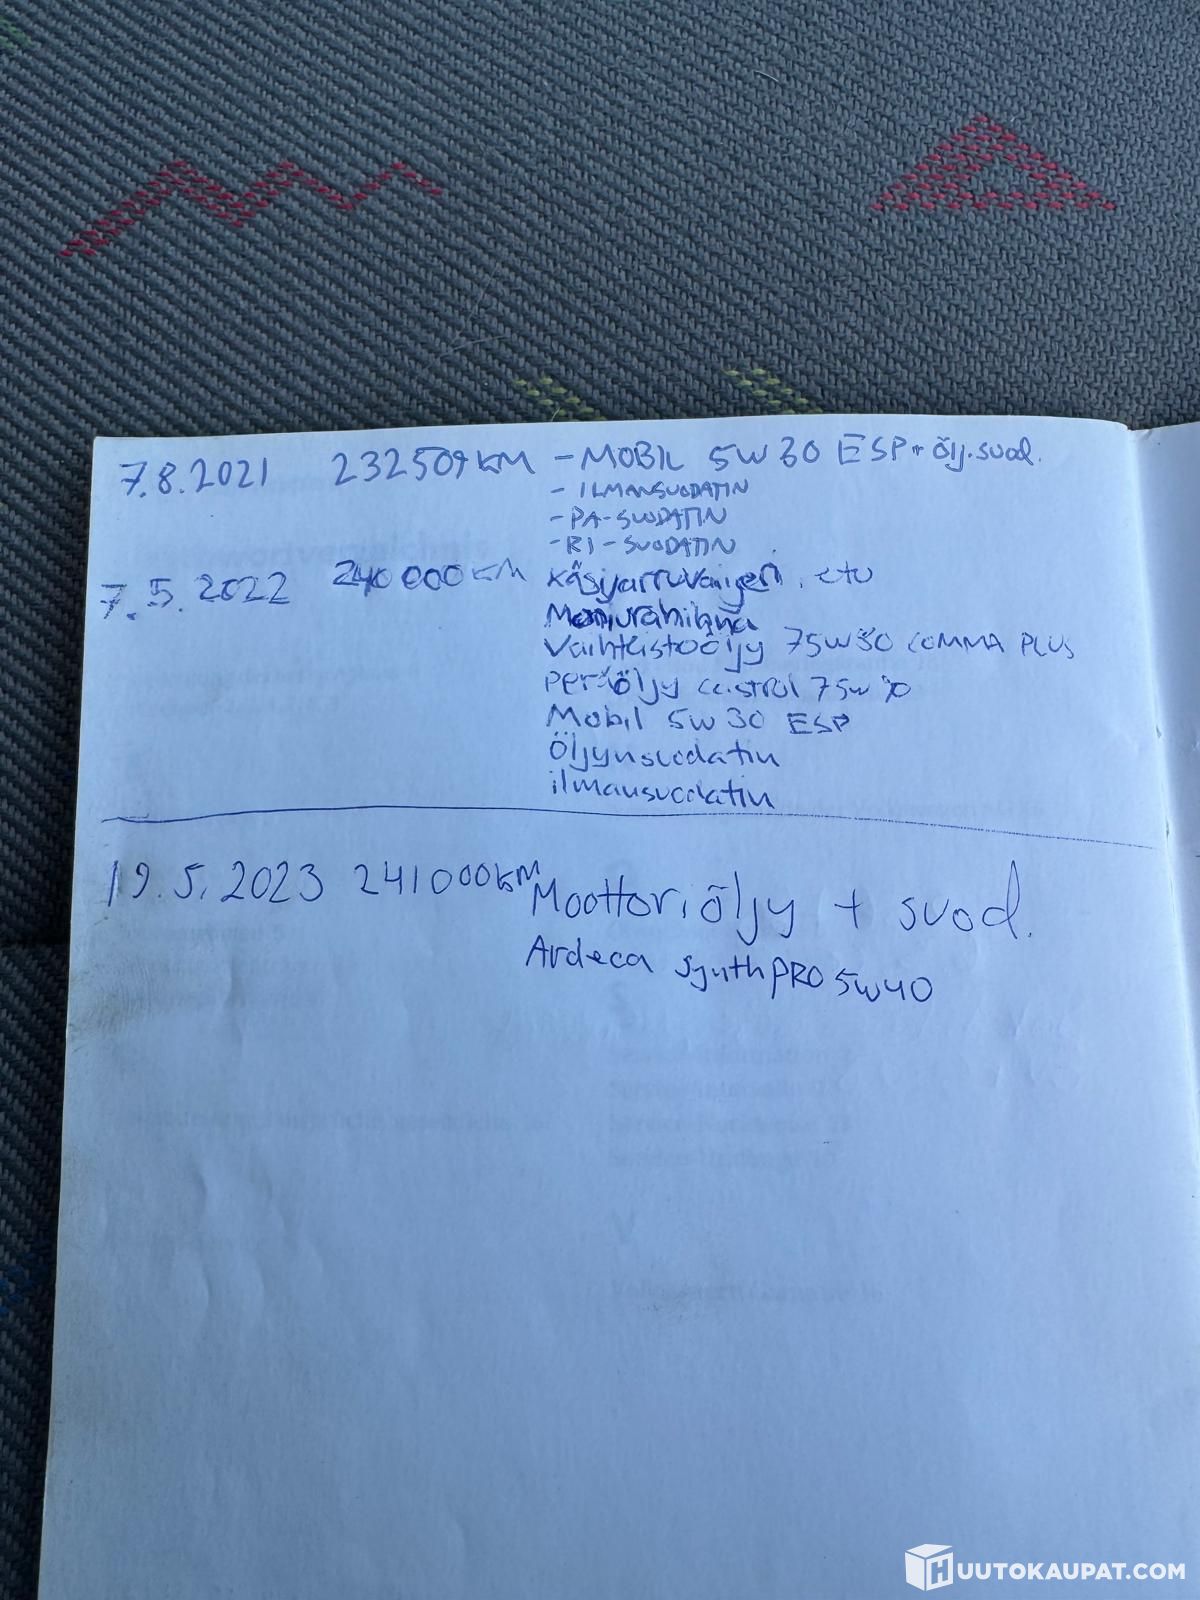 7.8.2021 232509 KM - MOBIL 5W30 ESP + ölj.suod.
- ILMANSUODATIN
- PA-SUODATIN
- RI-SUODATIN
7.5.2022 240000 KM Käsijarruvaijeri, etu
Moniurahihna
Vaihteistoöljy 75W80 COMMA PLUS
peräöljy castrol 75w90
Mobil 5W30 ESP
Öljynsuodatin
ilmansuodatin
19.5.2023 241000KM Moottoriöljy + suod.
Ardeca synthPRO 5W40
HUUTOKAUPAT.COM